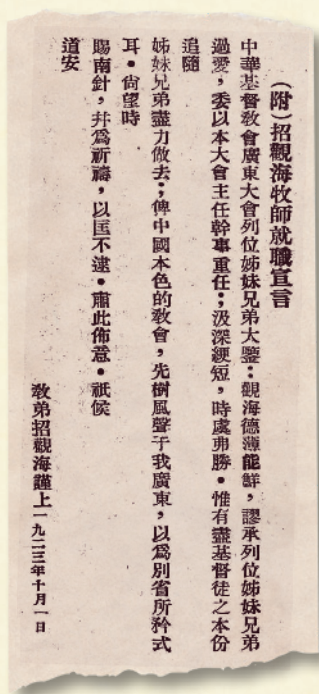 (附)招觀海牧師就職宣言
中華基督教會廣東大會列位姊妹兄弟大鑒:觀海德薄能鮮,謬承列位姊妹兄弟
過愛,委以本大會主任幹事重任;汲深綆短,時虞弗勝。惟有盡基督徒之本份
追隨
姊妹兄弟盡力做去;俾中國本色的教會,先樹風聲于我廣東,以爲別省所矜式
耳。尙望時
賜南針,幷爲祈禱,以匡不逮。肅此佈意。祇候
道安
敎弟招觀海謹上一九二三年十月一日